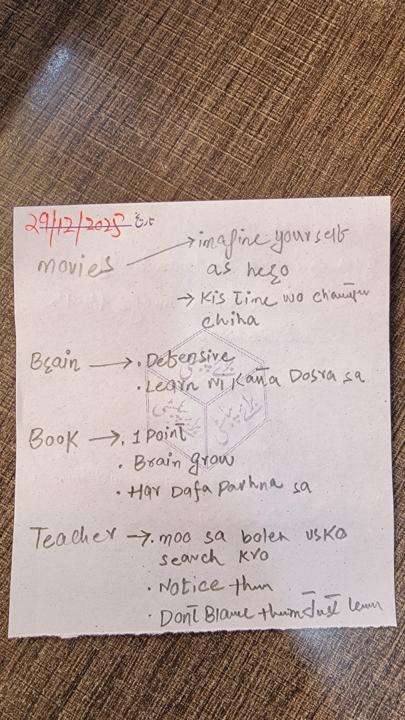 29/12/2025
movies → imagine yourself
as hero
→ Kis Time wo change
chiha
Brain → • Defensive
• Learn ni Kana Dosra sa
Book → • 1 point
• Brain grow
• Har Dafa Parhna sa
Teacher → • moo sa bolen usko
search kro
• Notice them
• Don't Blame them Just learn